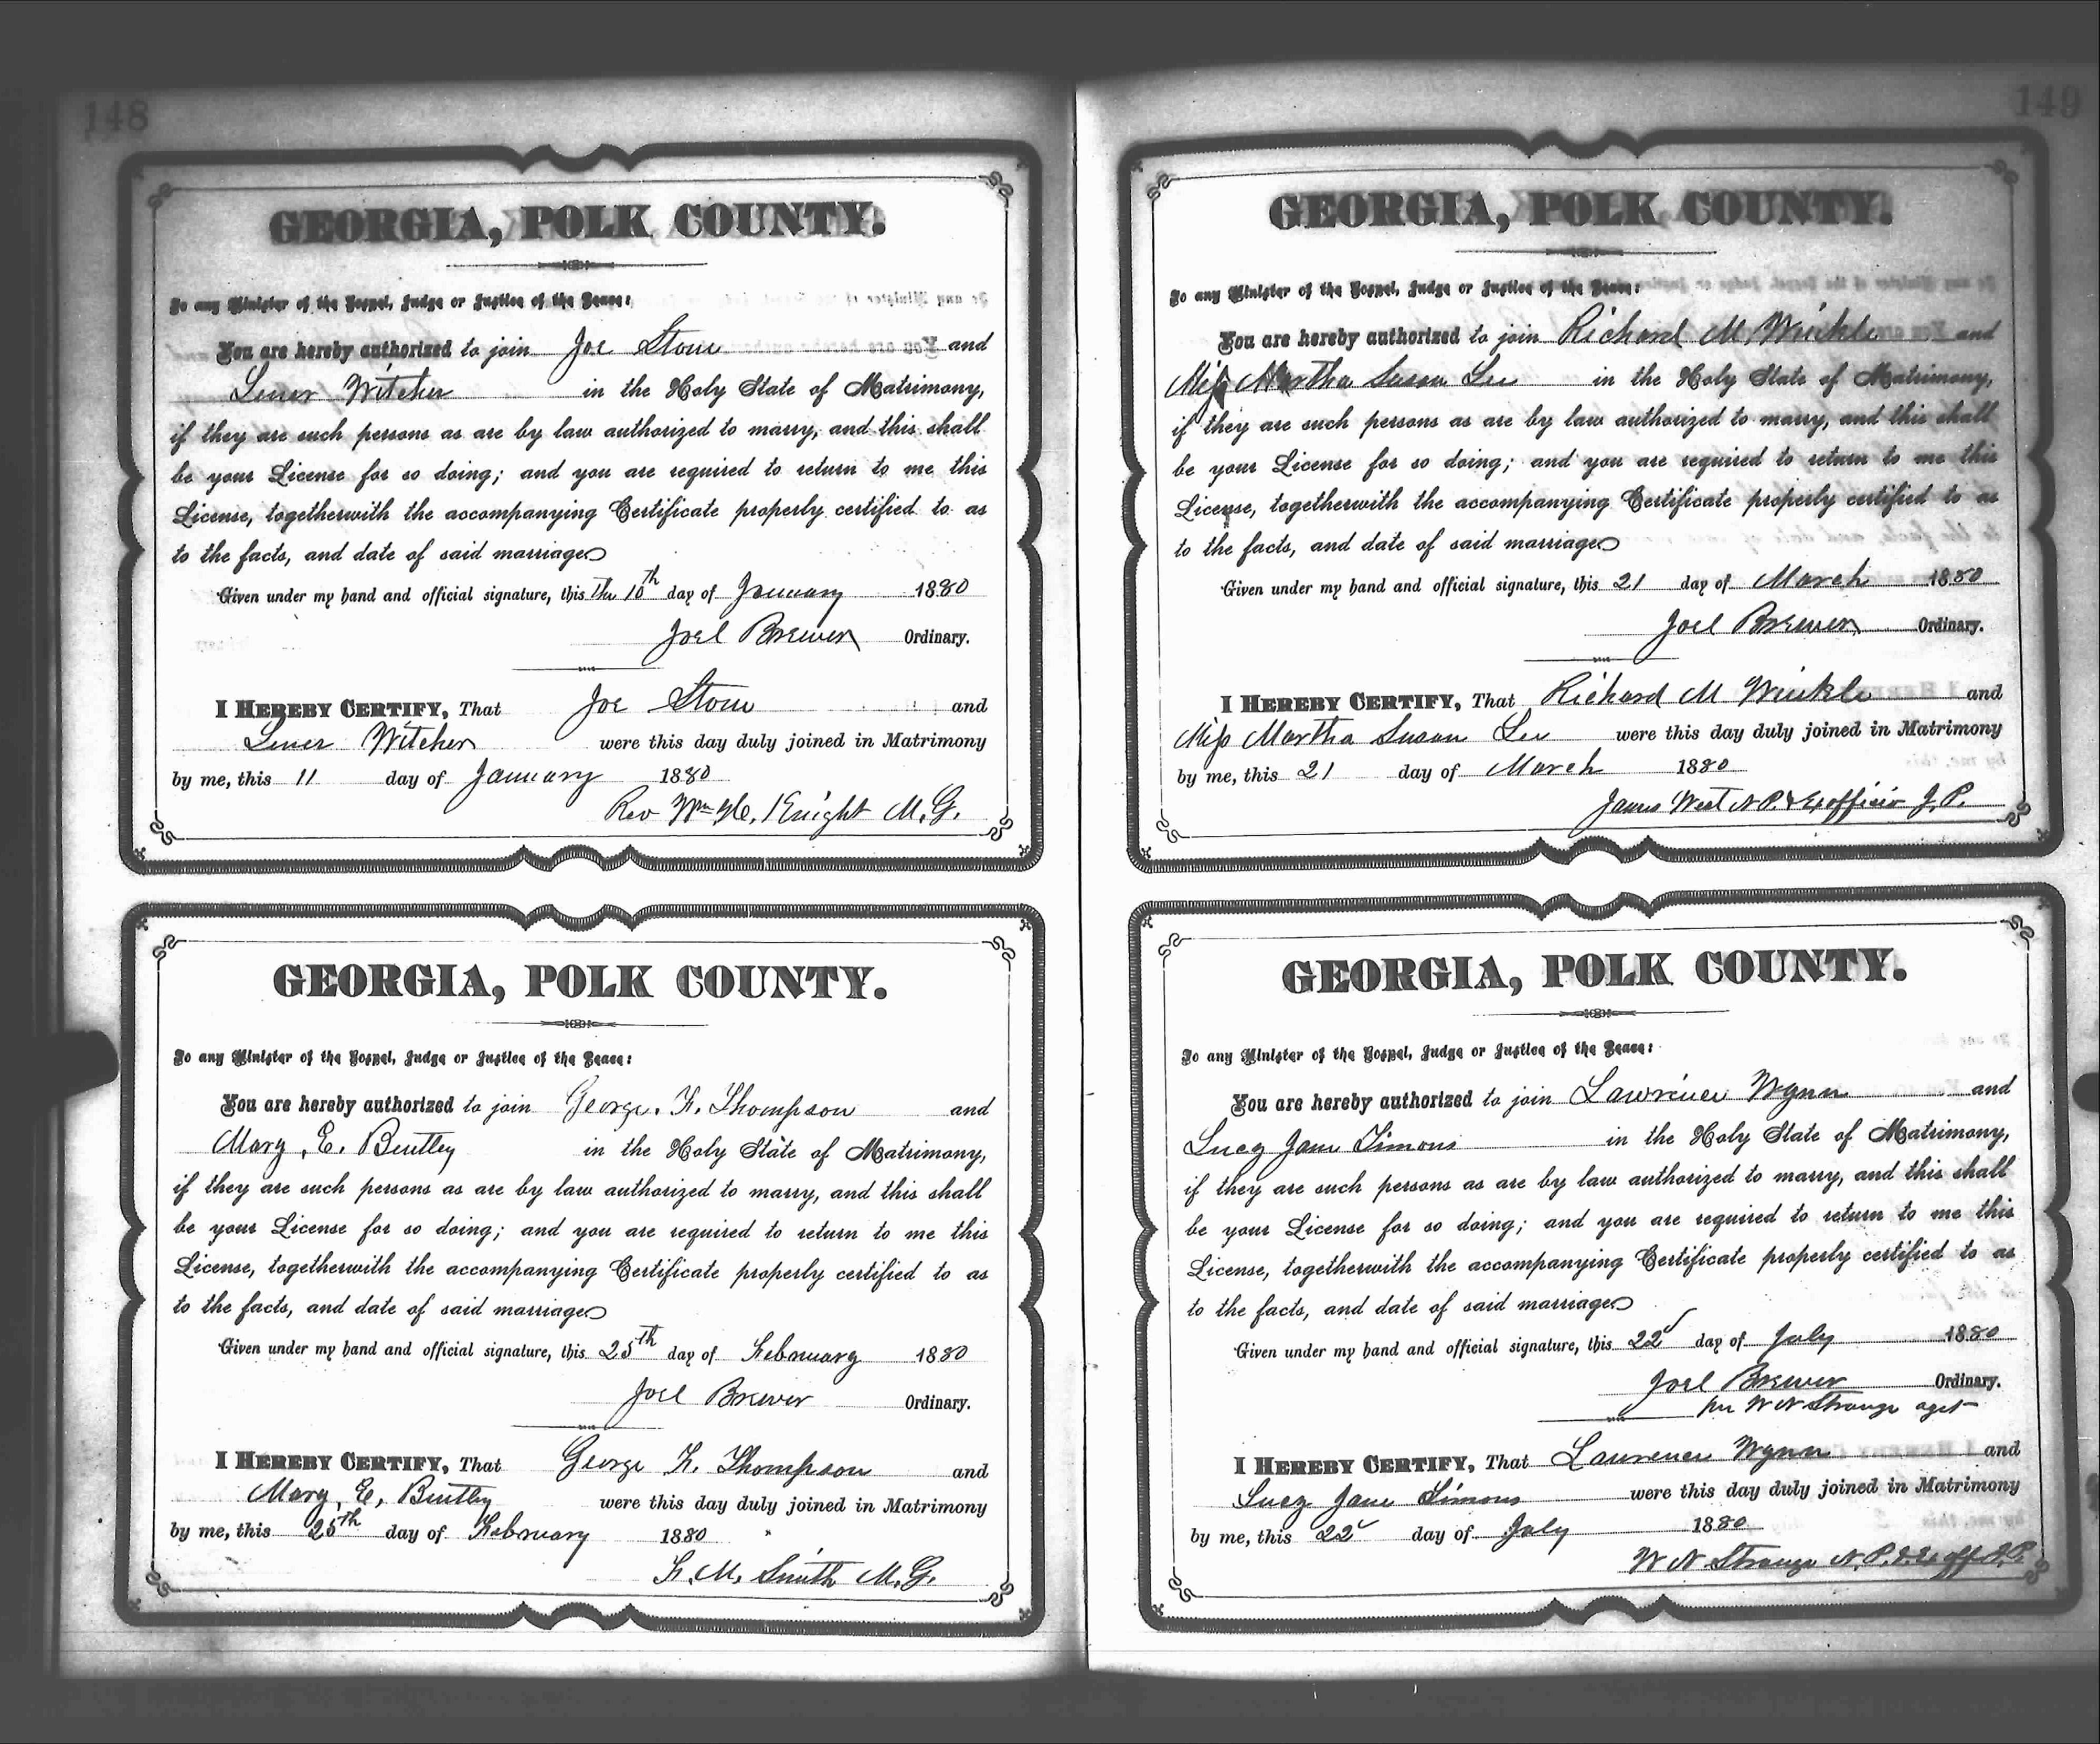 148
GEORGIA, POLK COUNTY.
To any Minister of the Gospel, Judge or Justice of the Peace:
You are hereby authorized to join Joe Stone and
Lener Witcher in the Holy State of Matrimony,
if they are such persons as are by law authorized to marry, and this shall
be your License for so doing; and you are required to return to me this
License, togetherwith the accompanying Certificate properly certified to as
to the facts, and date of said marriage.
Given under my hand and official signature, this The 10th day of January 1880
Joel Brewer Ordinary.
I HEREBY CERTIFY, That Joe Stone and
Lener Witcher were this day duly joined in Matrimony
by me, this 11 day of January 1880
Rev Wm H. Knight M. G.
GEORGIA, POLK COUNTY.
To any Minister of the Gospel, Judge or Justice of the Peace:
You are hereby authorized to join George. F. Thompson and
Mary, E. Bentley in the Holy State of Matrimony,
if they are such persons as are by law authorized to marry, and this shall
be your License for so doing; and you are required to return to me this
License, togetherwith the accompanying Certificate properly certified to as
to the facts, and date of said marriage.
Given under my hand and official signature, this 25th day of February 1880
Joel Brewer Ordinary.
I HEREBY CERTIFY, That George F. Thompson and
Mary, E, Bentley were this day duly joined in Matrimony
by me, this 25th day of February 1880
F. M. Smith M. G.
149
GEORGIA, POLK COUNTY.
To any Minister of the Gospel, Judge or Justice of the Peace:
You are hereby authorized to join Richard M Winkle and
Miss Martha Susan Lee in the Holy State of Matrimony,
if they are such persons as are by law authorized to marry, and this shall
be your License for so doing; and you are required to return to me this
License, togetherwith the accompanying Certificate properly certified to as
to the facts, and date of said marriage.
Given under my hand and official signature, this 21 day of March 1880
Joel Brewer Ordinary.
I HEREBY CERTIFY, That Richard M Winkle and
Miss Martha Susan Lee were this day duly joined in Matrimony
by me, this 21 day of March 1880
James West N. P. & Ex officio J. P.
GEORGIA, POLK COUNTY.
To any Minister of the Gospel, Judge or Justice of the Peace:
You are hereby authorized to join Lawrence Wynn and
Lucy Jane Simons in the Holy State of Matrimony,
if they are such persons as are by law authorized to marry, and this shall
be your License for so doing; and you are required to return to me this
License, togetherwith the accompanying Certificate properly certified to as
to the facts, and date of said marriage.
Given under my hand and official signature, this 22d day of July 1880
Joel Brewer Ordinary.
per W N Strange agt
I HEREBY CERTIFY, That Lawrence Wynn and
Lucy Jane Simons were this day duly joined in Matrimony
by me, this 22d day of July 1880
W N Strange N. P. & Ex off J. P.